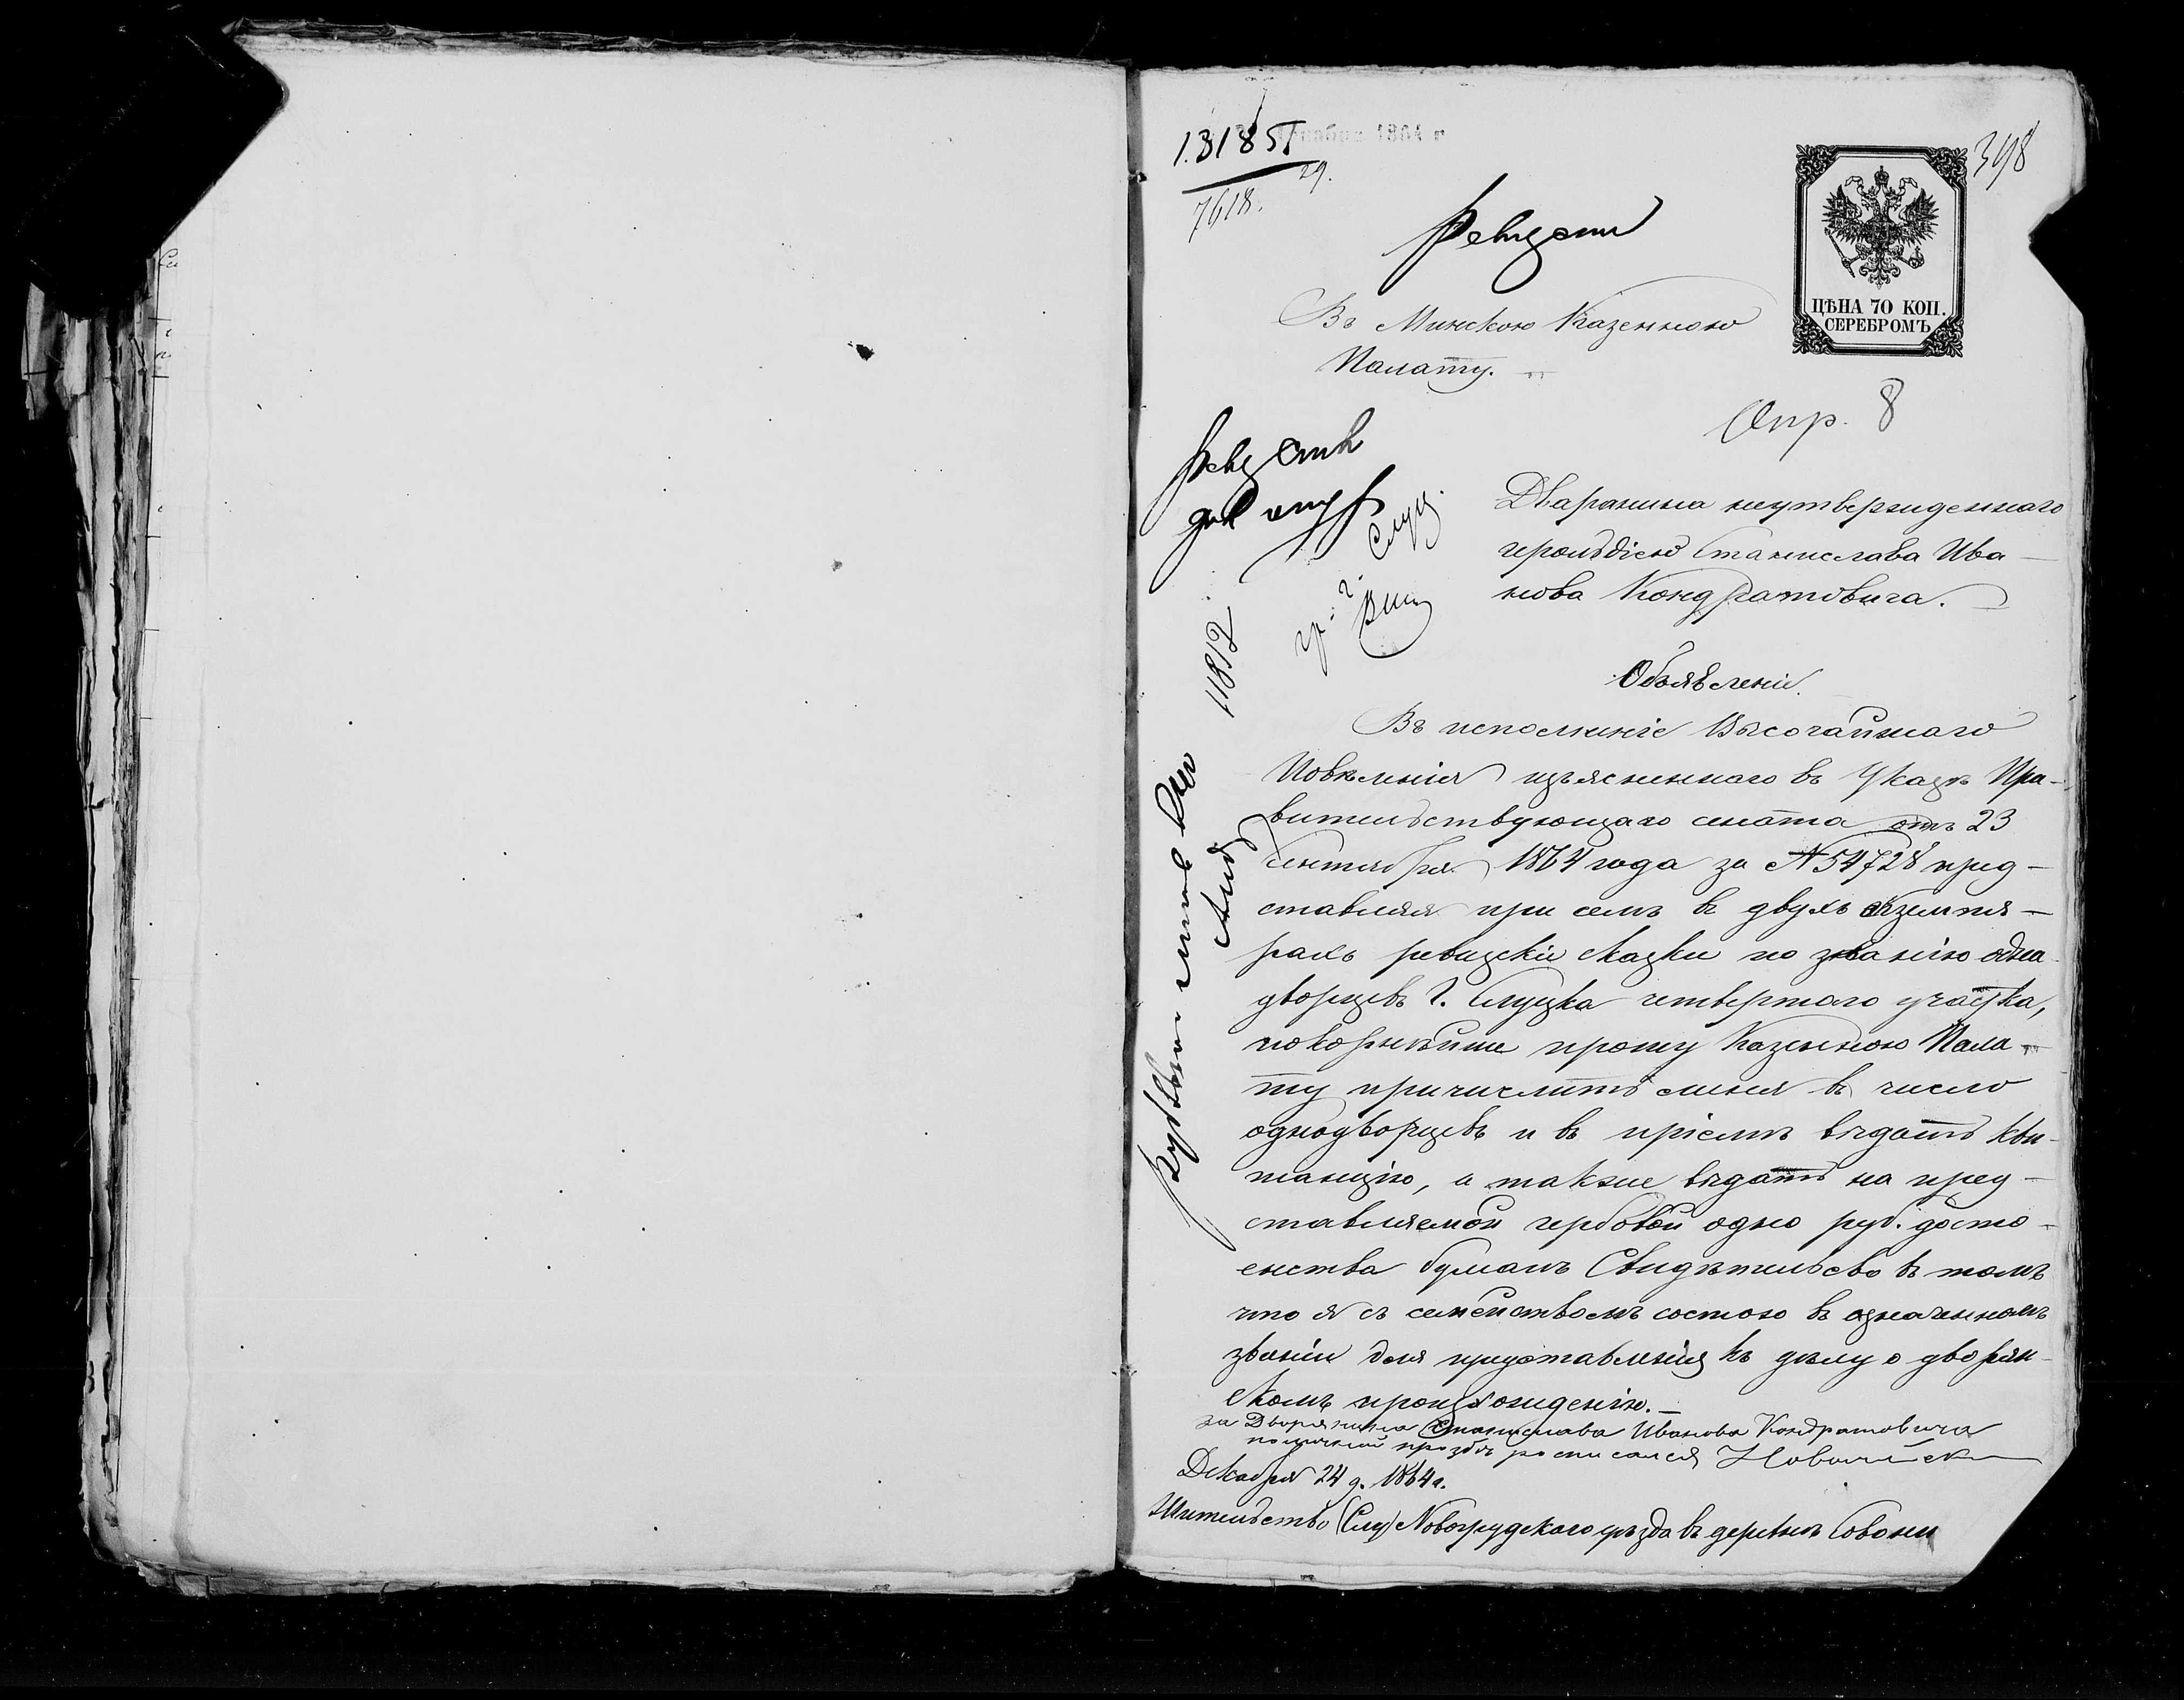 1.81851
29.
7618.
398
ЦѢНА 70 КОП.
СЕРЕБРОМЪ
Въ Минскою Казенною
Палату.
Опр. 8
Дваранина неутвержденнаго
герольдіею Станислава Ива-
нова Кондратовича.
Объявленіе.
Въ исполненіе Высочайшаго
Повеленія изъясненнаго въ Указѣ Пра-
вительствующаго сената отъ 23
Сентября 1864 года за № 54728 пред-
ставляя при семъ въ двухъ экземпля-
рахъ ревизскіе сказки по званію одна
дворцевъ г. Слуцка четвертаго участка,
покорнѣйше прошу Казенною Пала-
ту причислить меня въ число
однодворцевъ и въ пріемѣ выдать кви-
танцію, а также выдать на пред-
ставляемой гербовой одно руб. досто-
енства бумагѣ Свидѣтельсво въ томъ
что я съ семействомъ состою въ означеномъ
званіи для представленія къ дѣлу о дворян-
скомъ происхожденію.
за Дворянина Станислава Иванова Кондратовича
по личной прозбѣ росписался
Декабря 24 д. 1864 г.
Жительство (Слу) Новогрудскаго уѣзда въ деревнѣ
11812
г. Слуц.